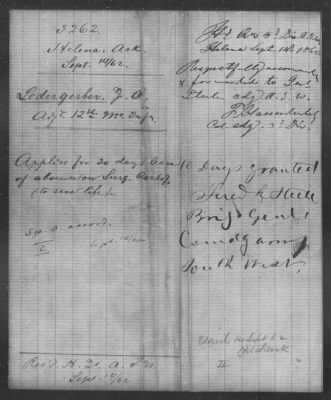 3262
Helena, Ark.
Sept. 14/62.
Ledergerber, F. A.
Adjt 12th Mo. Infy.
Applies for 20 days leave
of absence on Surg. Certif.
(to save life)
Sp. O. accord.
Sept. 14/62
Rec'd. H. Qr. A. S. W.
Sept. 14/62
Hd Qrs 3d Div A. S. W.
Helena Sept 14th 1862
Respectfully
forwarded to Genl
Steele cdg A. S. W.
Col cdg 3d Div
10 days granted
Fred k Steele
Brig Genl
Comdg army
South West,
14 Sept 62
II